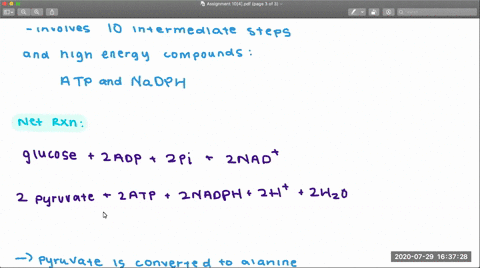 Assignment 10[4].pdf (page 3 of 3)
- involves 10 intermediate steps
and high energy compounds:
ATP and NaDPH
Net Rxn:
glucose + 2ADP + 2Pi + 2NAD+
2 pyruvate + 2ATP + 2NADPH + 2H+ + 2H2O
→ pyruvate is converted to alanine
2020-07-29 16:37:28